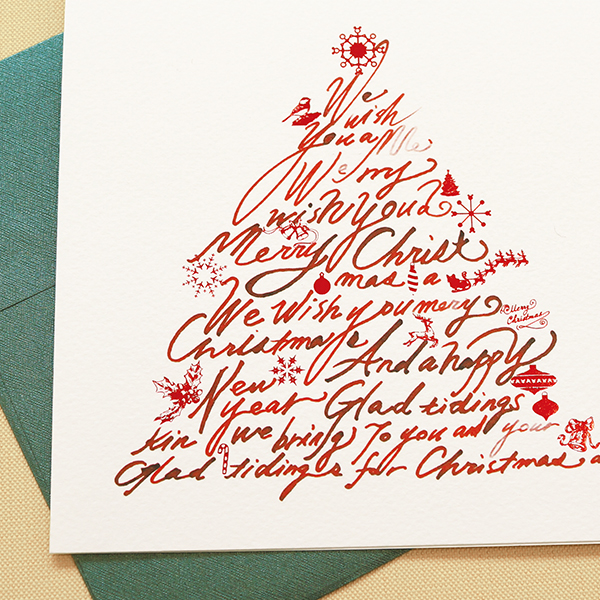 We
wish
You a Me
We my
wish You a
Merry Christ
mas a
We Wish you merry
Merry Christmas
Christmas
And a happy
New
year Glad tidings
kin we bring To you and your
Glad tidings for Christmas a